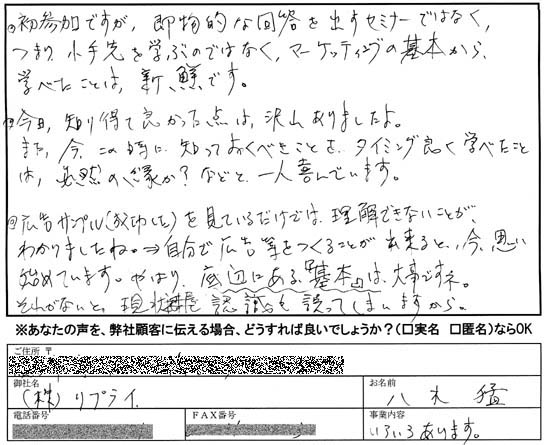 ◎初参加ですが、即物的な回答を出すセミナーではなく、
つまり、小手先を学ぶのではなく、マーケッティングの基本から、
学べたことは、新鮮です。
◎今日、知り得て良かった点は、沢山ありましたよ。
また、今、この時に、知っておくべきことを、タイミング良く学べたこと
は、必然の縁か？などと、一人喜んでいます。
◎広告サンプル(成功した)を見ているだけでは、理解できないことが、
わかりましたね。⇒自分で広告等をつくることが出来ると、今、思い
始めています。やはり、底辺にある『基本』は、大事ですネ。
それがないと、現状 認識を誤ってしまいますから。
※あなたの声を、弊社顧客に伝える場合、どうすれば良いでしょうか？(□実名 □匿名)ならOK
ご住所 〒
御社名 お名前
(株)リプライ 八木 猛
電話番号 FAX番号 事業内容
いろいろあります。